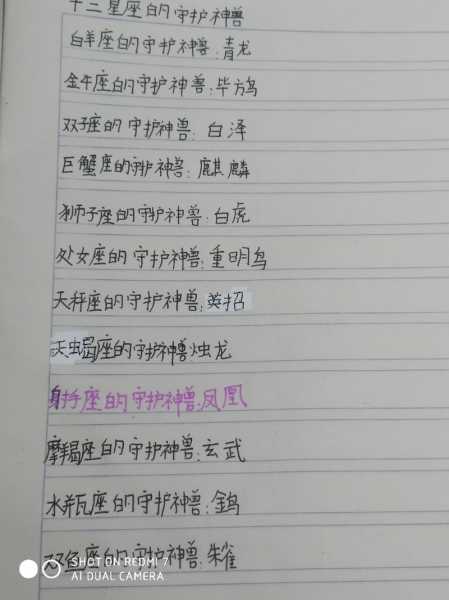 十二星座的守护神兽
白羊座的守护神兽:青龙
金牛座的守护神兽:毕方鸟
双子座的守护神兽:白泽
巨蟹座的守护神兽:麒麟
狮子座的守护神兽:白虎
处女座的守护神兽:重明鸟
天秤座的守护神兽:英招
天蝎座的守护神兽:烛龙
射手座的守护神兽:凤凰
摩羯座的守护神兽:玄武
水瓶座的守护神兽:
双鱼座的守护神兽:朱雀
SHOT ON REDMI 7
AI DUAL CAMERA